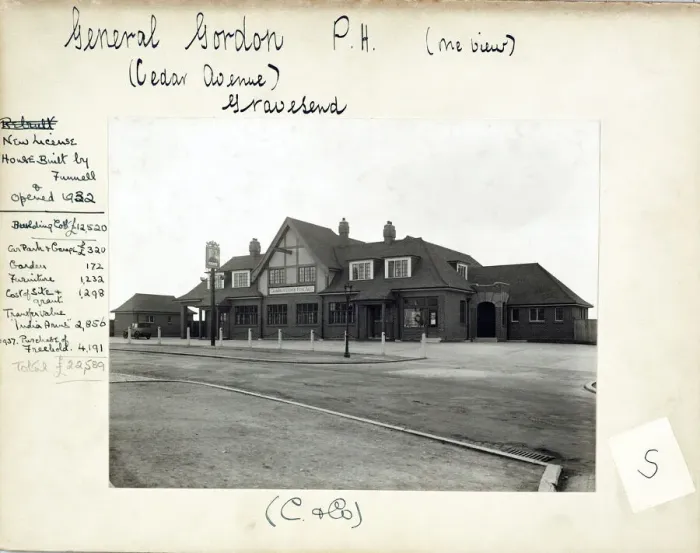 General Gordon P.H. (one view)
(Cedar Avenue)
Gravesend
Rebuilt
New License
House Built by
Funnell
&
Opened 1932
Building Cost £12520
Car Park & Garage £320
Garden 172
Furniture 1,232
Cost of Site & 1,298
grant
Transfer value
"India Arms" 2,856
1937. Purchase of
Freehold. 4,191
Total £22,589
S
(C. & Co)